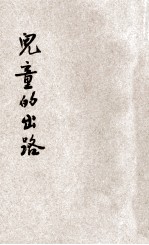 兒童的出路